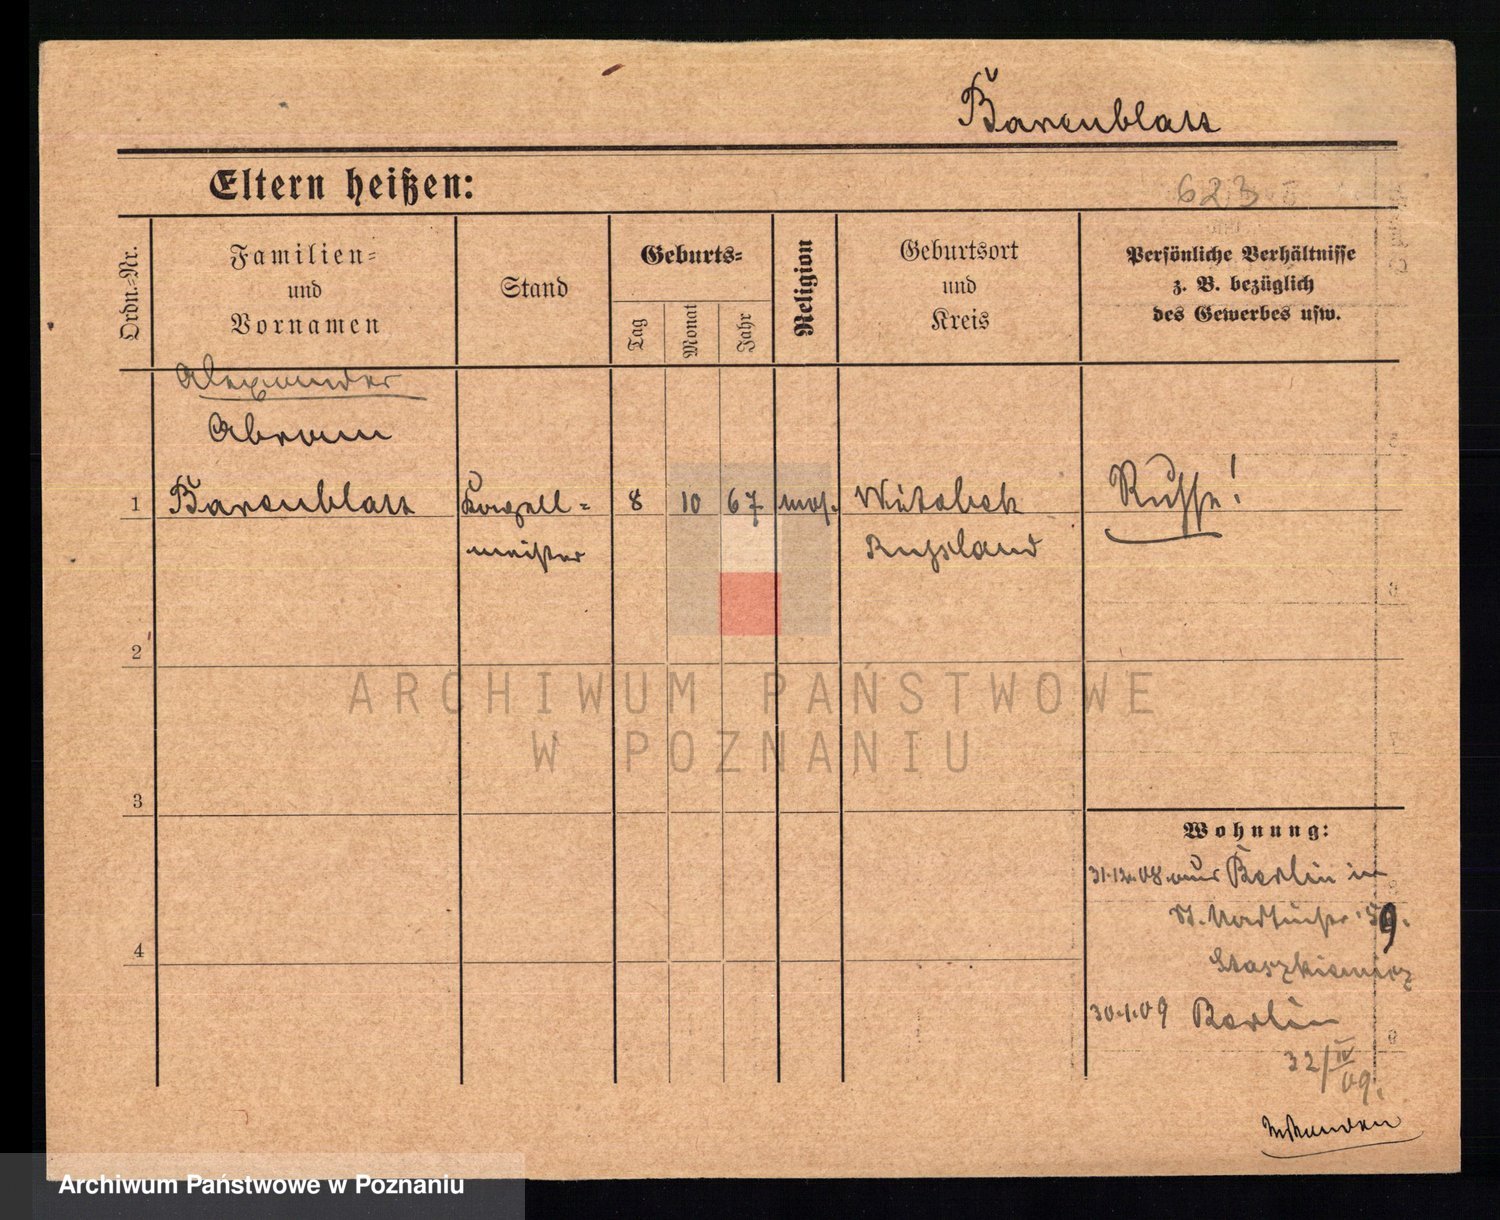 Barenblatt
Eltern heißen:
623
Ordn.-Nr.
Familien-
und
Vornamen
Stand
Geburts-
Tag
Monat
Jahr
Religion
Geburtsort
und
Kreis
Persönliche Verhältnisse
z. B. bezüglich
des Gewerbes usw.
Alexander
Abram
1 Barenblatt Kapell- 8 10 67 mos. Witebsk Russe!
meister Russland
2
3
4
Wohnung:
31.12.08 aus Berlin in
St. Martinstr. 59.
Staszkiewicz
30.1.09 Berlin
32/IV
09.
ARCHIWUM PAŃSTWOWE
W POZNANIU
Archiwum Państwowe w Poznaniu